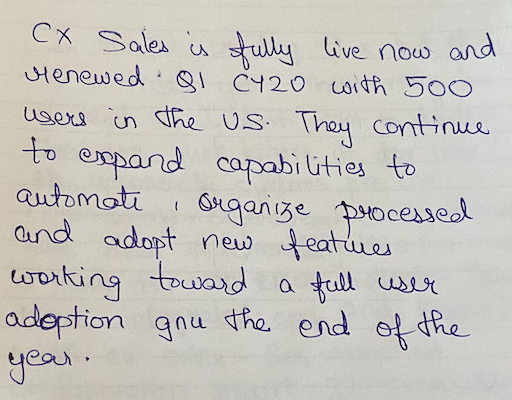 CX Sales is fully live now and
renewed. Q1 CY20 with 500
users in the US. They continue
to expand capabilities to
automate, organize processed
and adopt new features
working toward a full user
adoption gnu the end of the
year.